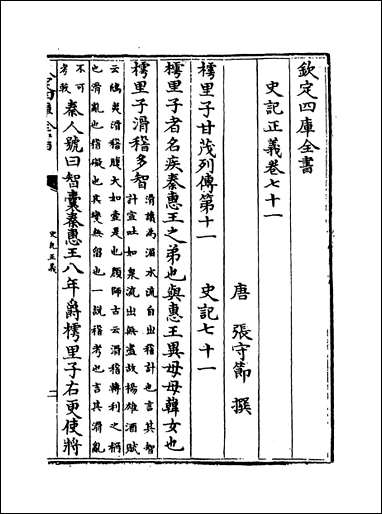 欽定四庫全書
史記正義卷七十一
唐 張守節 撰
樗里子甘茂列傳第十一 史記七十一
樗里子者名疾秦惠王之弟也與惠王異母母韓女也
樗里子滑稽多智滑讀為淈水流自出稽計也言其智
計宣吐如泉流出無盡故楊雄酒賦
云鴟夷滑稽腹大如壺是也顔師古云滑稽轉利之稱
也滑亂也稽礙也其變無留也一説稽考也言其滑亂
不可
考較秦人號曰智囊秦惠王八年爵樗里子右更使將
史記正義